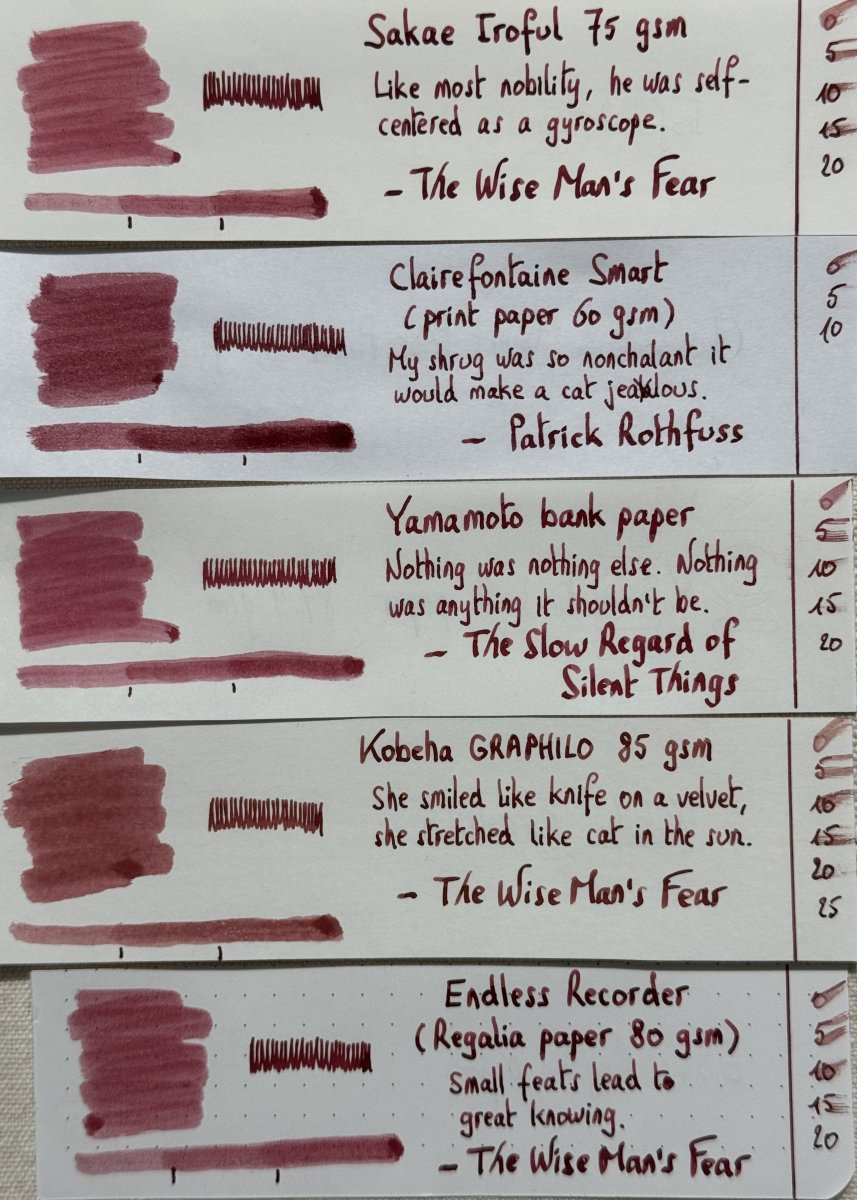 Sakae Iroful 75 gsm
Like most nobility, he was self-
centered as a gyroscope.
– The Wise Man's Fear
0
5
10
15
20
Clairefontaine Smart
(print paper 60 gsm)
My shrug was so nonchalant it
would make a cat jealous.
– Patrick Rothfuss
0
5
10
Yamamoto bank paper
Nothing was nothing else. Nothing
was anything it shouldn't be.
– The Slow Regard of
Silent Things
0
5
10
15
20
Kobeha GRAPHILO 85 gsm
She smiled like knife on a velvet,
she stretched like cat in the sun.
– The Wise Man's Fear
0
5
10
15
20
25
Endless Recorder
(Regalia paper 80 gsm)
Small feats lead to
great knowing.
– The Wise Man's Fear
0
5
10
15
20